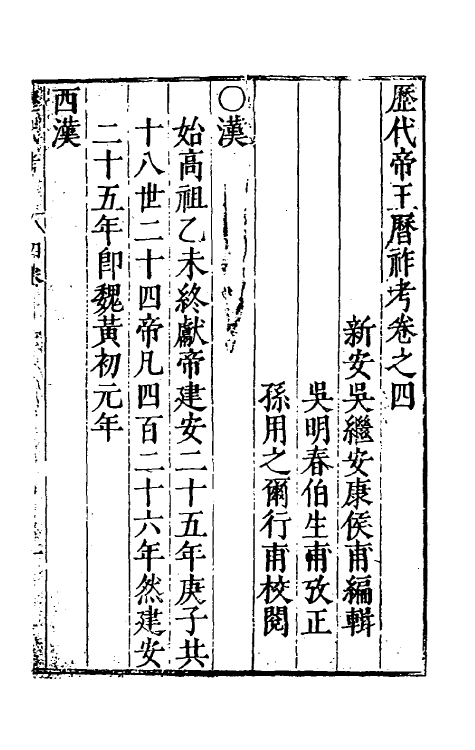 歷代帝王曆祚考卷之四
新安吳繼安康侯甫編輯
吳明春伯生甫攷正
孫用之爾行甫校閱
○漢
始高祖乙未終獻帝建安二十五年庚子共
十八世二十四帝凡四百二十六年然建安
二十五年卽魏黃初元年
西漢